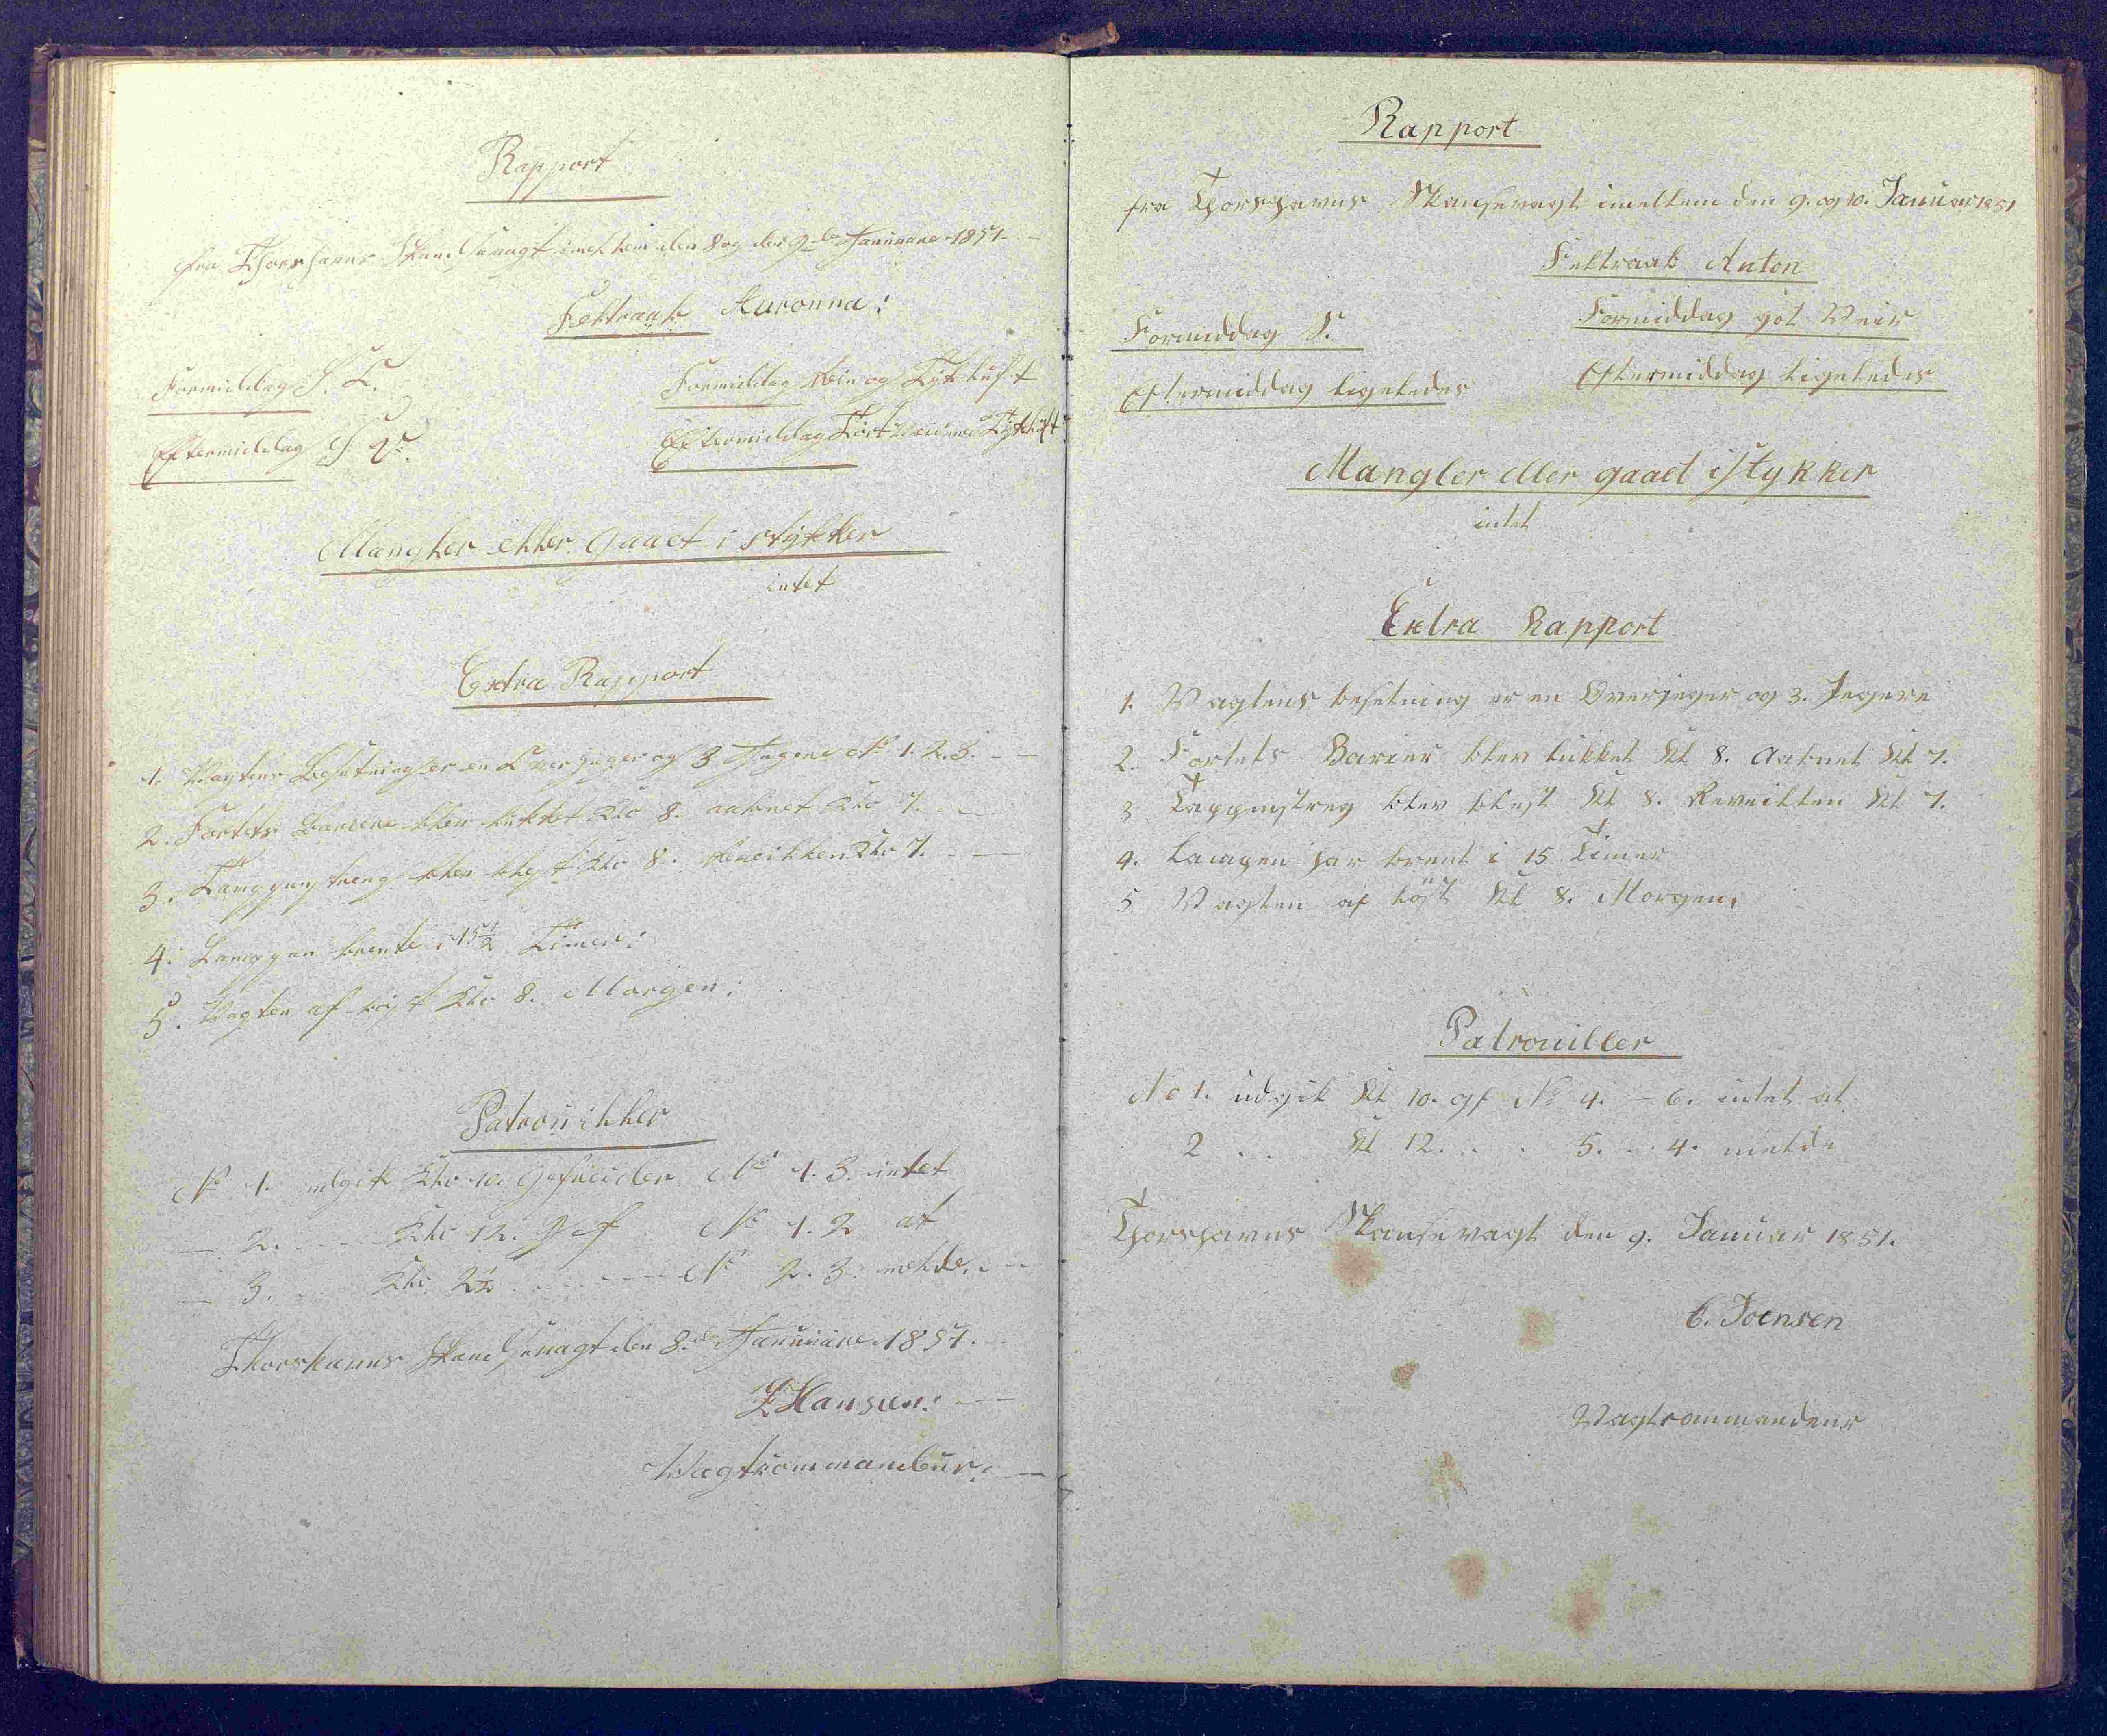 Rapport
fra Thorshavns Skandsevagt imellem den 8 og den 9de Januare 1851
Feltraab Auronna:
Formiddag S. O.
Formiddag Rein og Tyk luft
Eftermiddag S V.
Eftermiddag Tört Veir med Tÿkluft
Mangler eller Gaaet i stÿkker
intet
Extra Rapport
1. Vagtens Besetning er en Overjeger og 3 Jegere No 1. 2. 3.
2. Fortets Bariere blev lukket Klo 8. aabnet Klo 7.
3. blev blest Klo 8. Reveillen Klo 7.
4. Lampen brente i 15 1/2 Timer:
5. Vagten af löst Klo 8. Morgen:
Patrouiller
No 1. udgik Klo 10. Gefreider No 1. 3. intet
— 2. Klo 12. Gef No 1. 2 at
— 3. Klo 2 1/2 No 2. 3. melde.
Thorshavns Skandsevagt den 8de Januare 1851.
Hansen.
Vagtcommandeur:
Rapport
fra Thorshavns Skansevagt imellem den 9. og 10. Januar 1851
Feltraab Anton
Formiddag S.
Formiddag got Veir
Eftermiddag ligeledes
Eftermiddag ligeledes
Mangler eller gaaet istykker
intet
Extra Rapport
1. Vagtens besetning er en Overjeger og 3. Jegere
2. Fortets Barier blev lukket Kl 8. Aabnet Kl 7.
3 Tappenstreg blev blest Kl 8. Reveillen Kl 7.
4. Lampen har brent i 15 Timer
5 Vagten af löst Kl 8. Morgen.
Patrouiller
No 1. udgik Kl 10. gf No 4. — 6. intet at
2 . . Kl 12. . . 5. . . 4. melde
Thorshavns Skansevagt den 9. Januar 1851.
Joensen
Vagtcommandeur